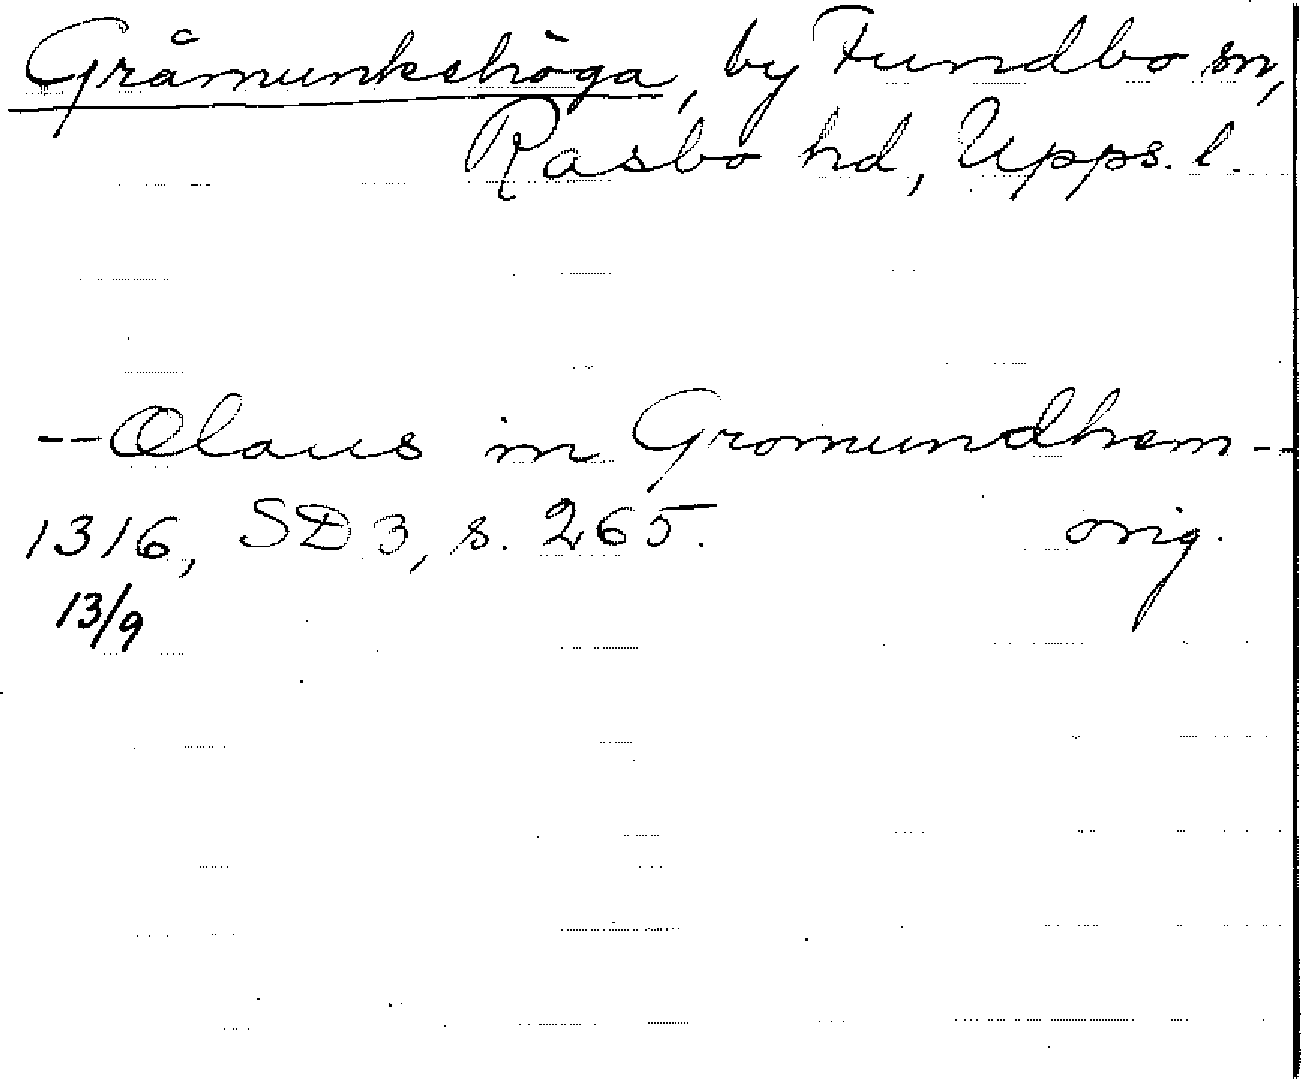 Gråmunkehöga, by Fundbo sn,
Rasbo hd, Upps. l.
-- Olaus in Gromundhem --
1316, SD 3, s. 265. orig.
13/9